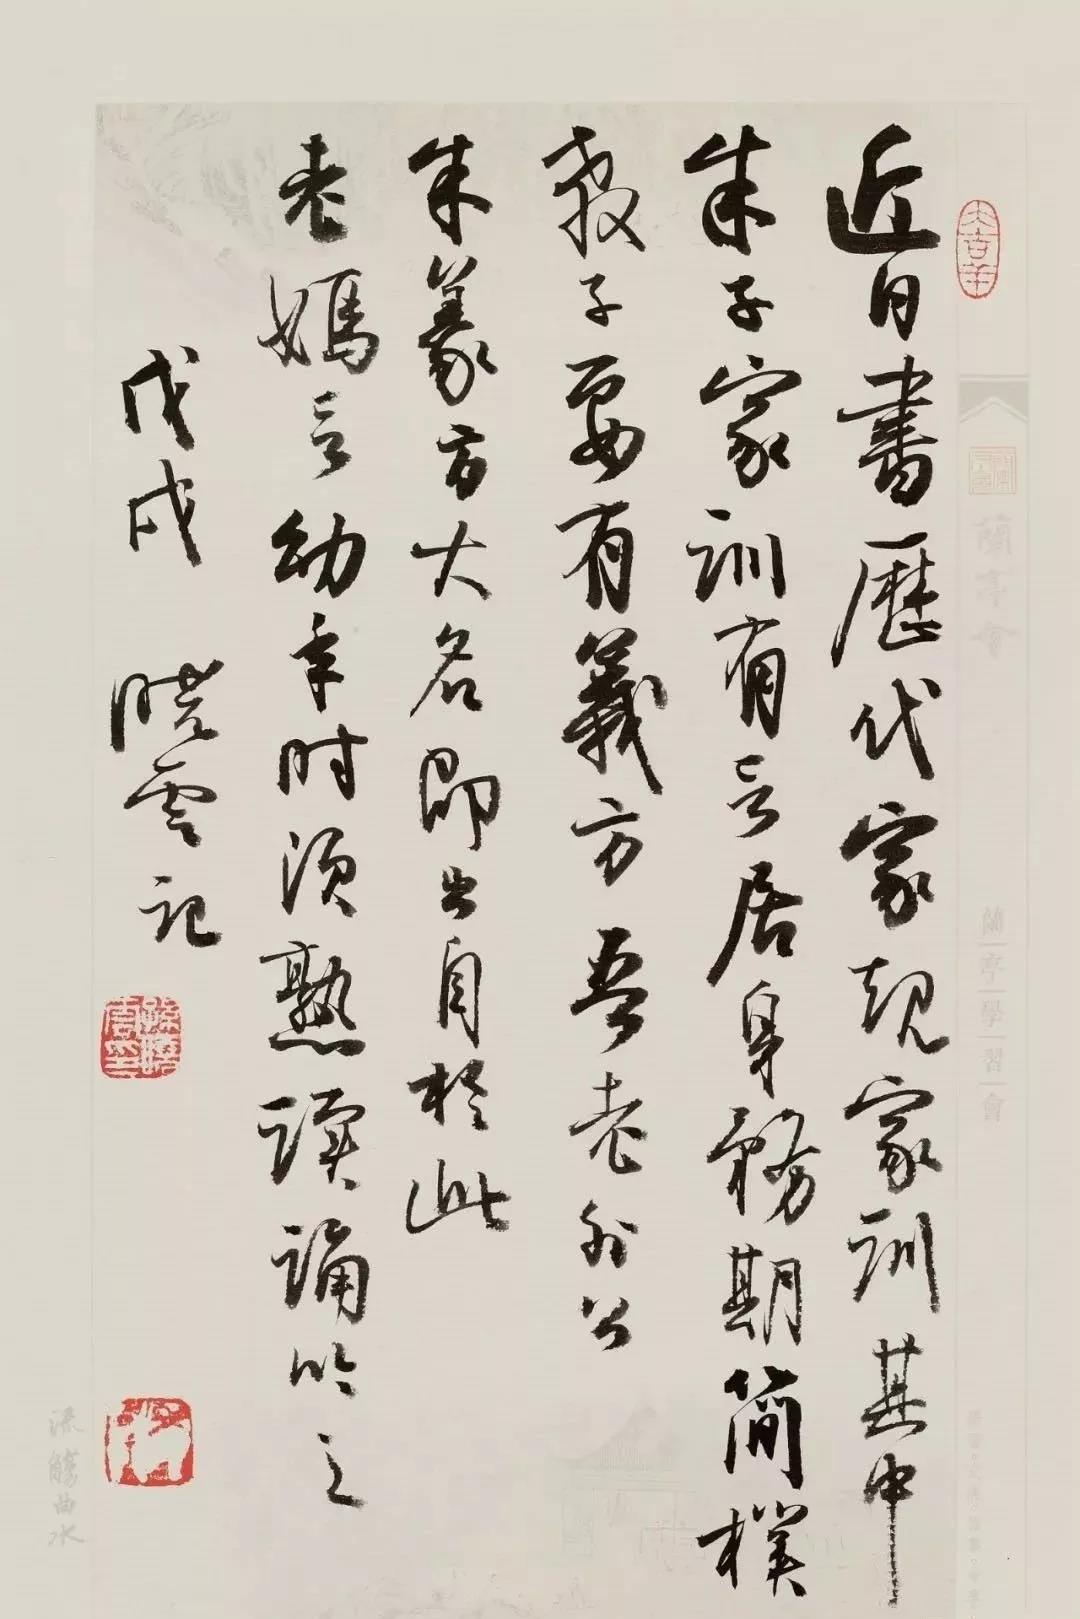 大吉羊
近日書歷代家規家訓其中
朱子家訓有言居身務期簡樸
教子要有義方吾老外公
朱義方大名即出自於此
老媽言幼年时須熟讀誦吟之
戊戌 曉雲記
蘭亭會
蘭亭學習會
流觴曲水